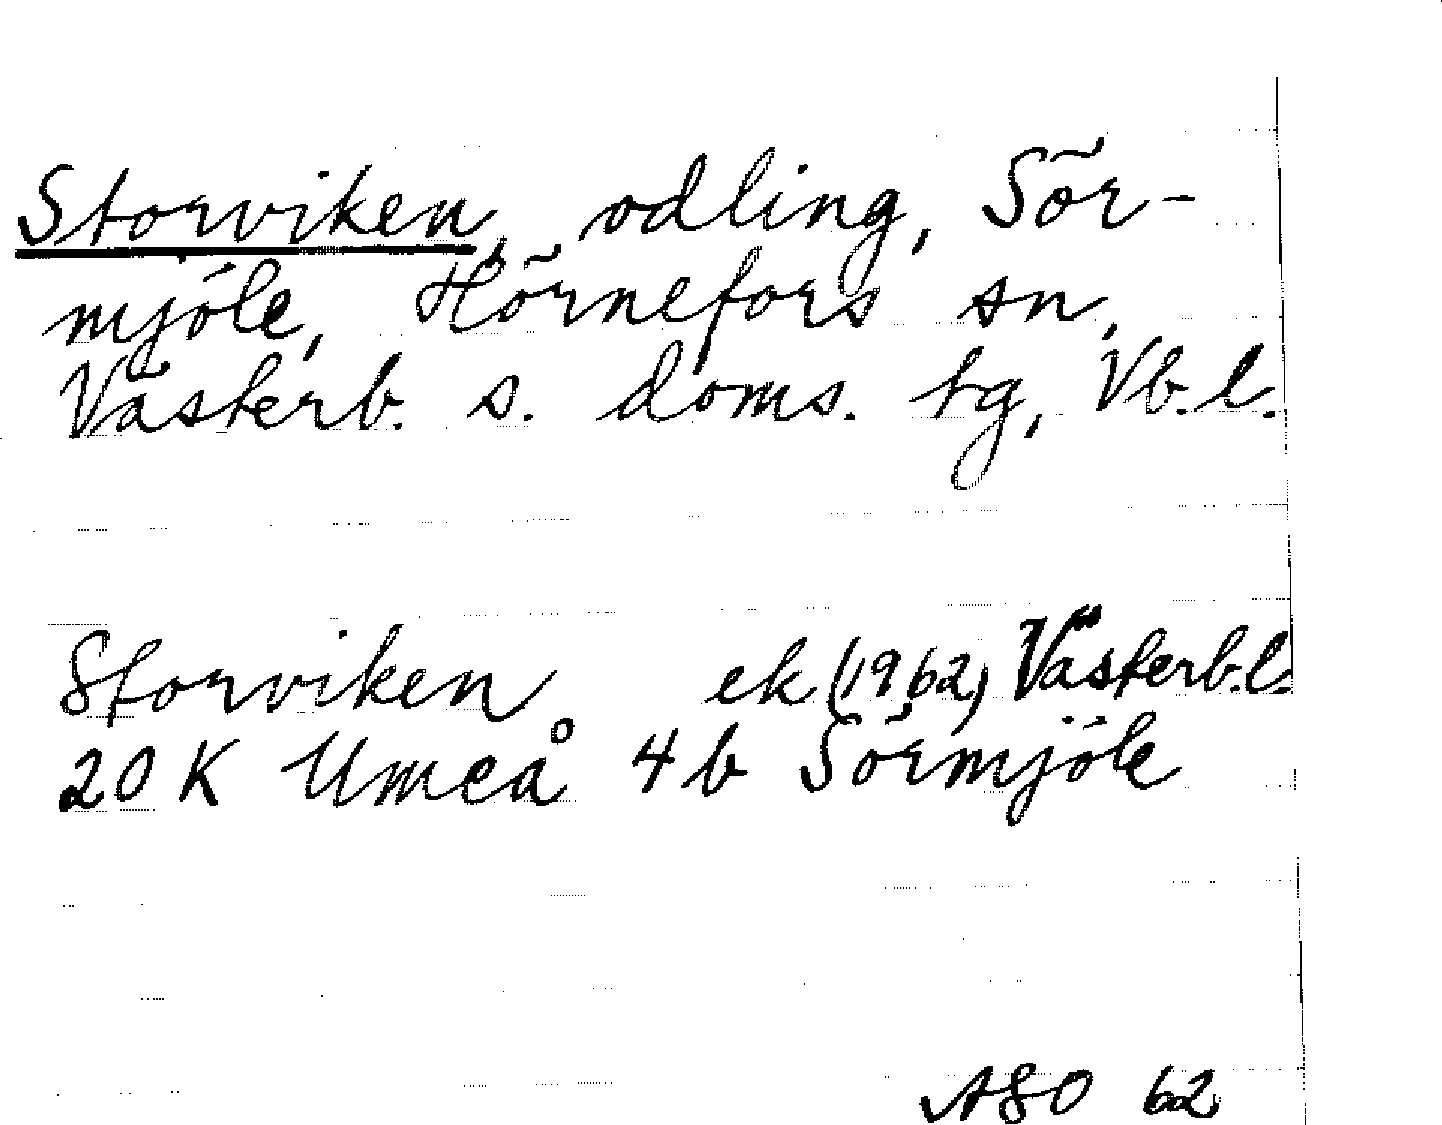 Storviken, odling, Sör-
mjöle, Hörnefors sn,
Västerb. s. doms. tg, Vb. l.
Storviken ek (1962) Västerb. l.
20 K Umeå 4 b Sörmjöle
ASO 62